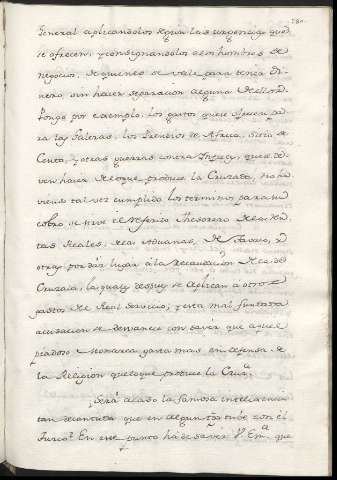 General aplicandolos segun las urgencias que
se ofrecen, y consignandolos a los hombres de
negocios, de quienes se vale para tener di-
nero sin hacer separacion alguna de ellos.
Pongo por exemplo, los gastos que se hacen pa
ra las Galeras, los Presidios de Africa, Sitio de
Ceuta, y otras guerras contra Infieles, que se de-
ven hacer de lo que produce la Cruzada, no ha
viendo tal vez cumplido los terminos para su
cobro se sirve el Thesorero de las Ren-
tas Reales, de las Aduanas, de Tavaco, y
otras por dar lugar á la recaudacion de la
Cruzada, las quales despues se aplican a otros
gastos del Real servicio; y esta mal fundada
acusacion se desvanece con saver que aquel
piadoso Monarca gasta mas en defensa de
la Religion que lo que produce la Cruz.a
Será acaso la famosa inteligencia
tan decantada que en algun tpo. tube con el
Turco? En este punto há de saver V. Em.a que